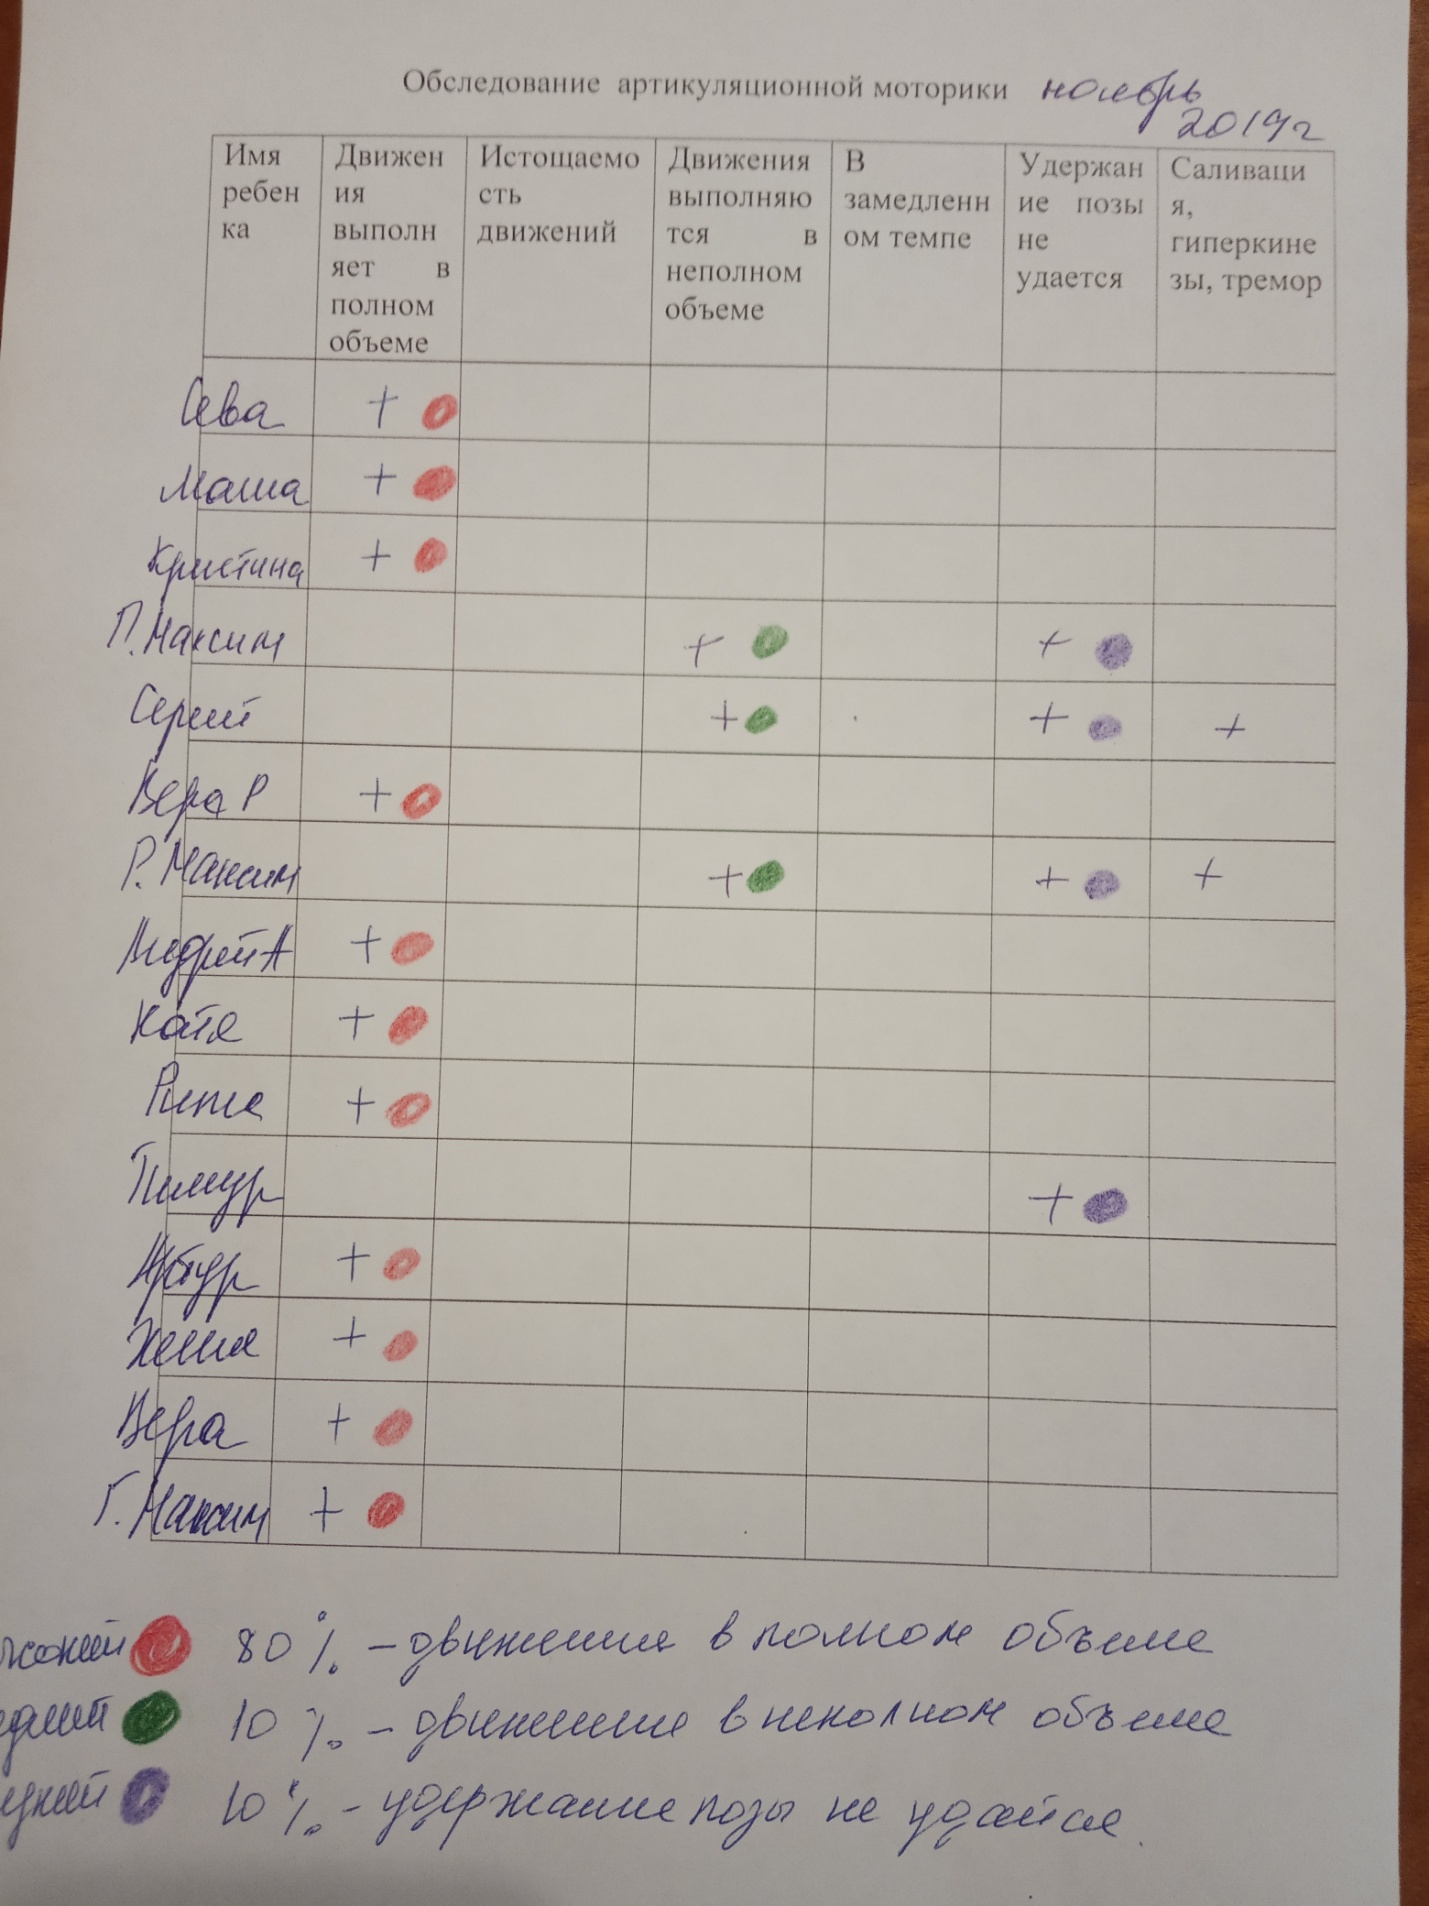 Обследование артикуляционной моторики ноябрь
2019г
Имя
ребен
ка
Движен
ия
выполн
яет в
полном
объеме
Истощаемо
сть
движений
Движения
выполняю
тся в
неполном
объеме
В
замедленн
ом темпе
Удержан
ие позы
не
удается
Саливаци
я,
гиперкине
зы, тремор
Сева +
Маша +
Кристина +
П. Максим + +
Сергей + + +
Вера Р +
Р. Максим + + +
Андрей А +
Катя +
Рита +
Тимур +
Артур +
Женя +
Вера +
Г. Максим +
80 % – движения в полном объеме
10 % – движение в неполном объеме
10 % – удержание позы не удаётся.